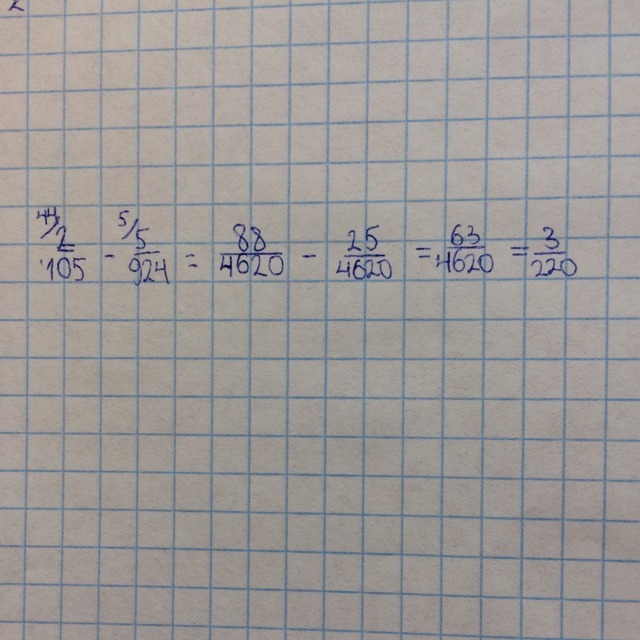 44/2/105 - 5/5/924 = 88/4620 - 25/4620 = 63/4620 = 3/220